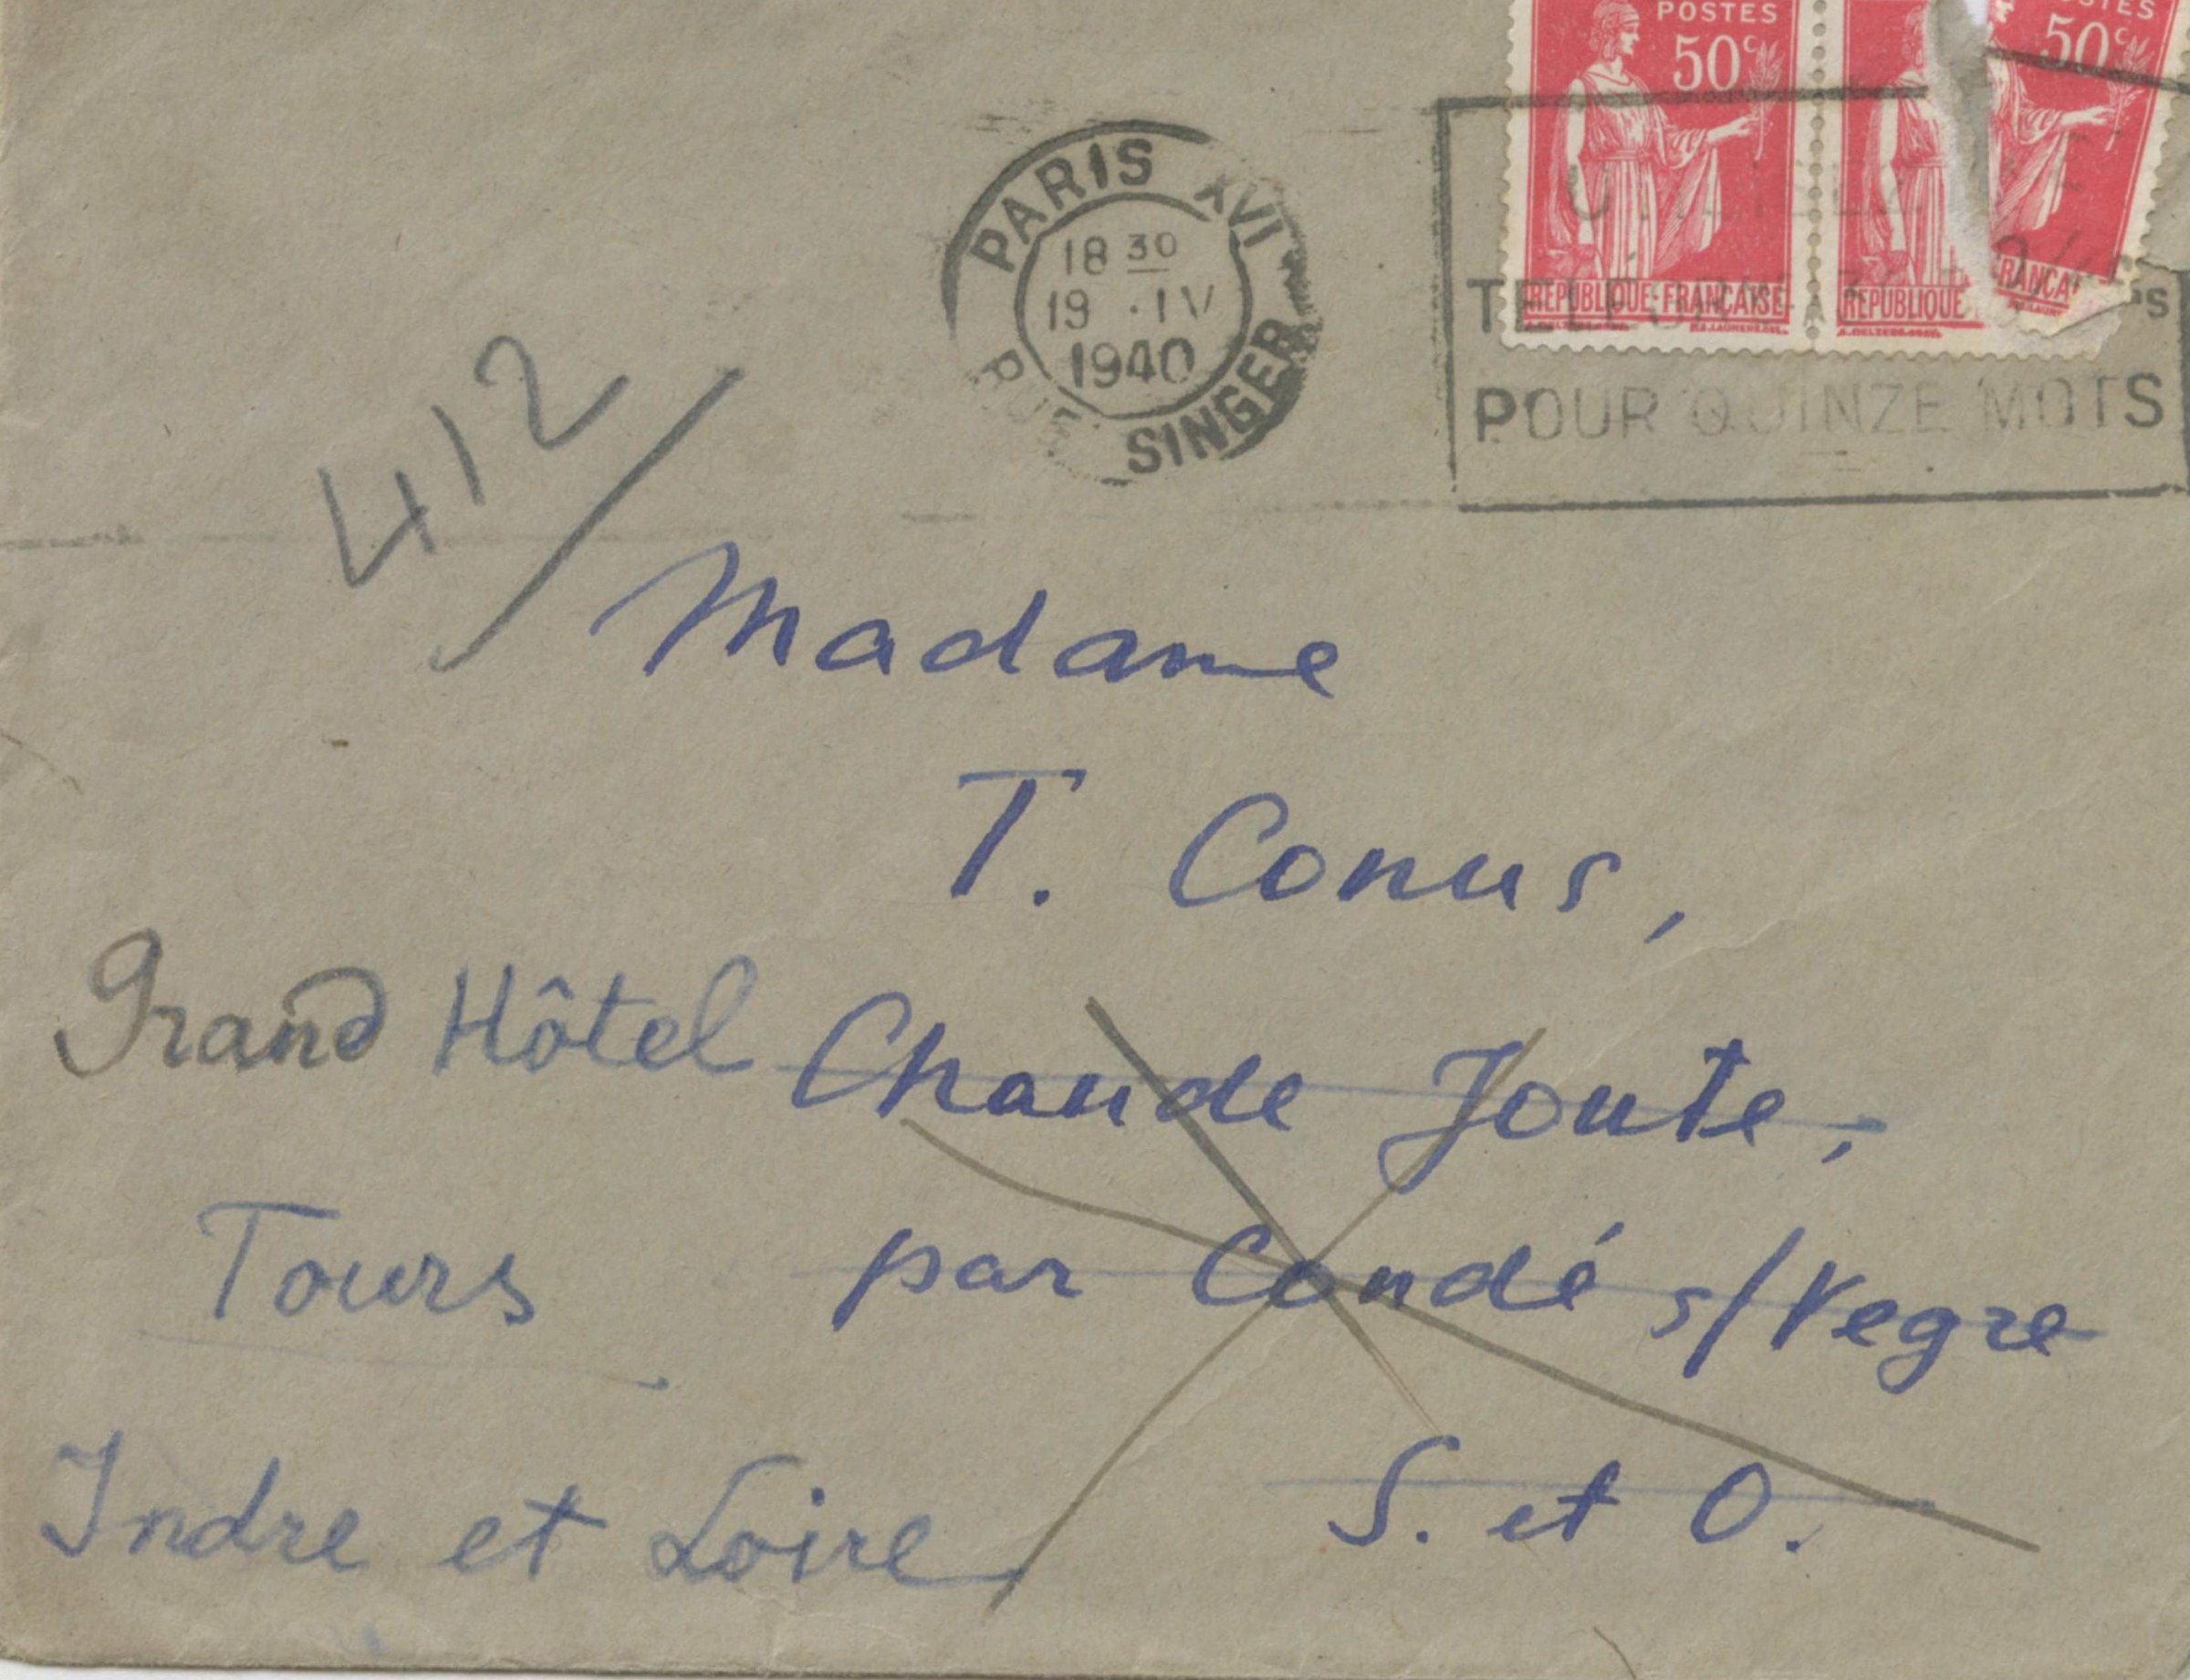 POSTES
50c
RÉPUBLIQUE-FRANÇAISE
POSTES
50c
RÉPUBLIQUE FRANÇAI
PARIS XVI
18 30
19 · IV
1940
RUE SINGER
POUR QUINZE MOTS
412
Madame
T. Conus,
Grand Hôtel Chaude Joute,
Tours par Condé s/Vegre
Indre et Loire S. et O.